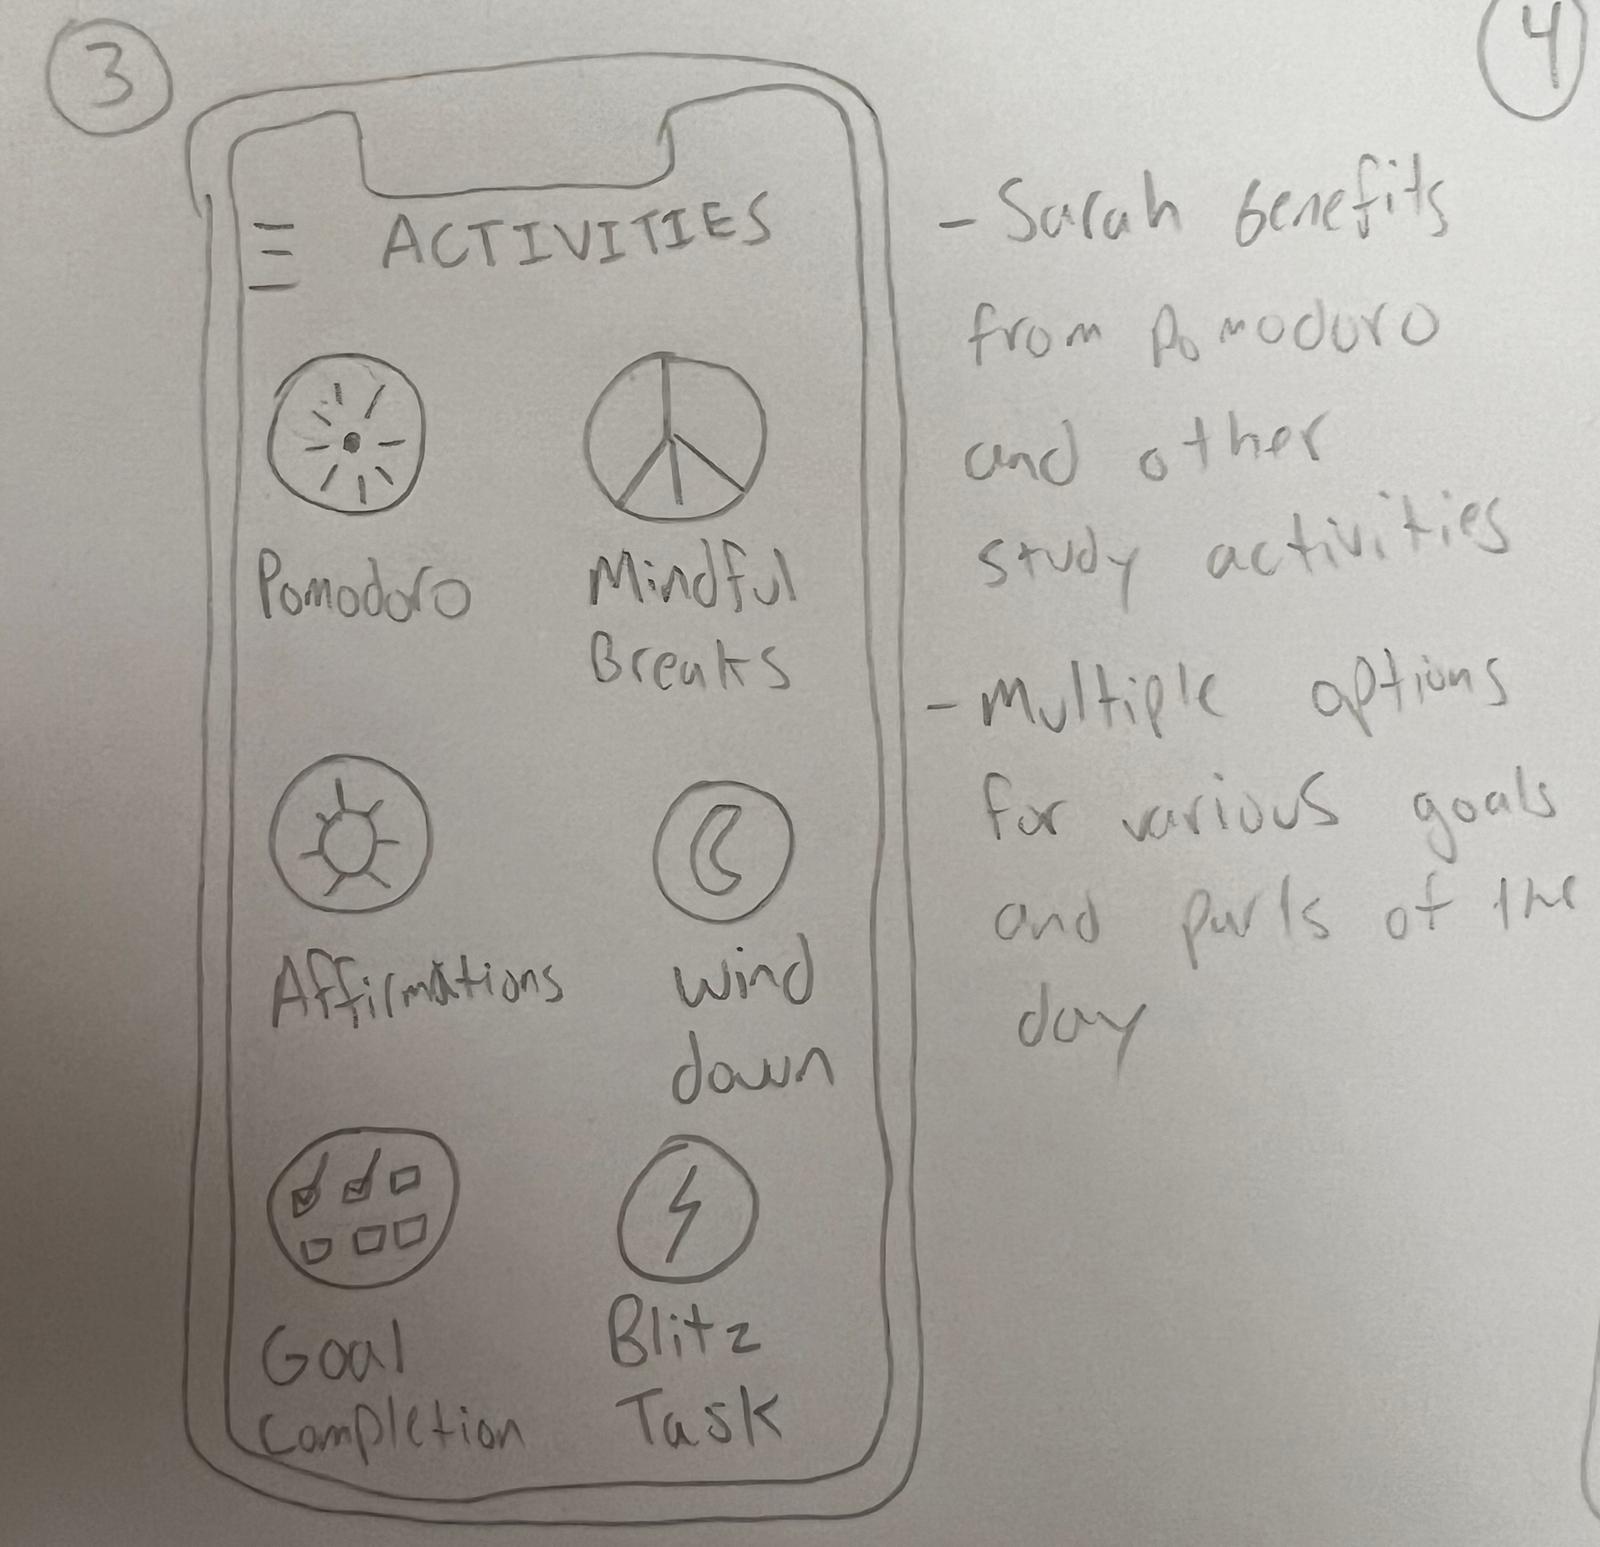 3
ACTIVITIES
Pomodoro
Mindful
Breaks
Affirmations
Wind
down
Goal
Completion
Blitz
Task
- Sarah benefits
from Pomodoro
and other
study activities
- Multiple options
for various goals
and parts of the
day
4